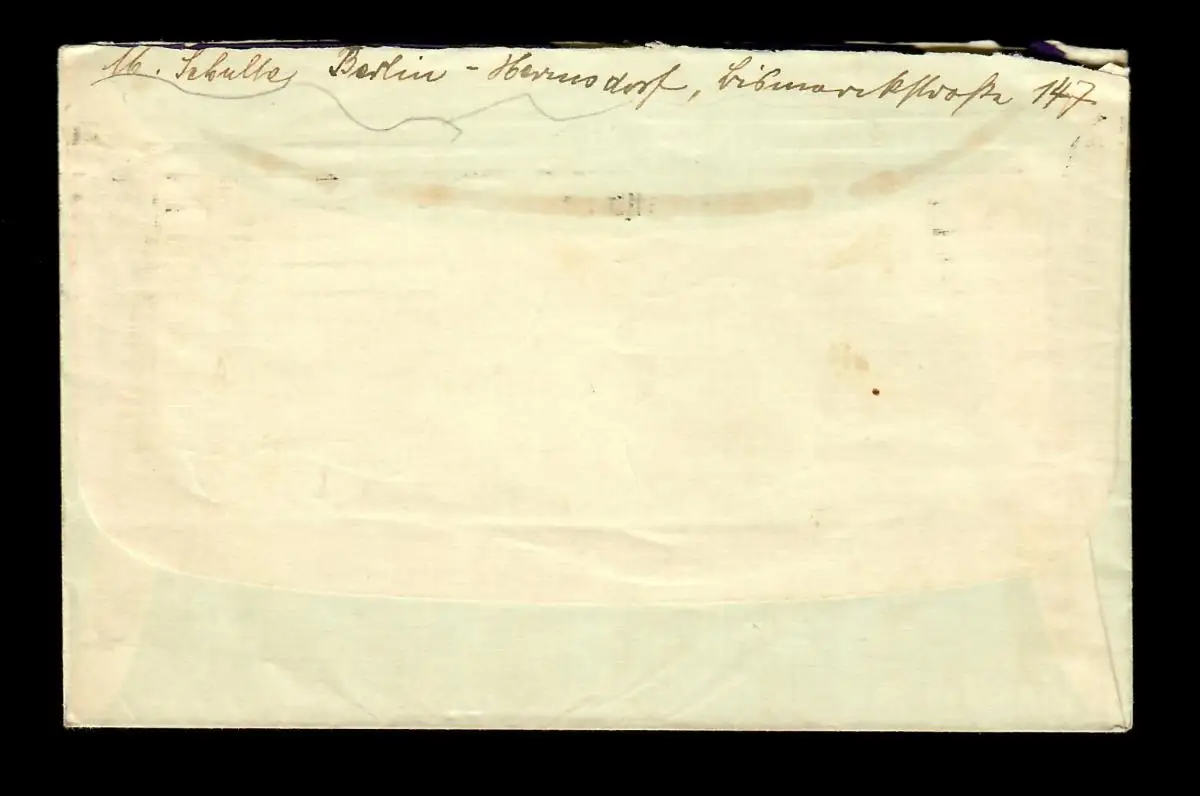 M. Schulte, Berlin - Hermsdorf, Bismarckstraße 147